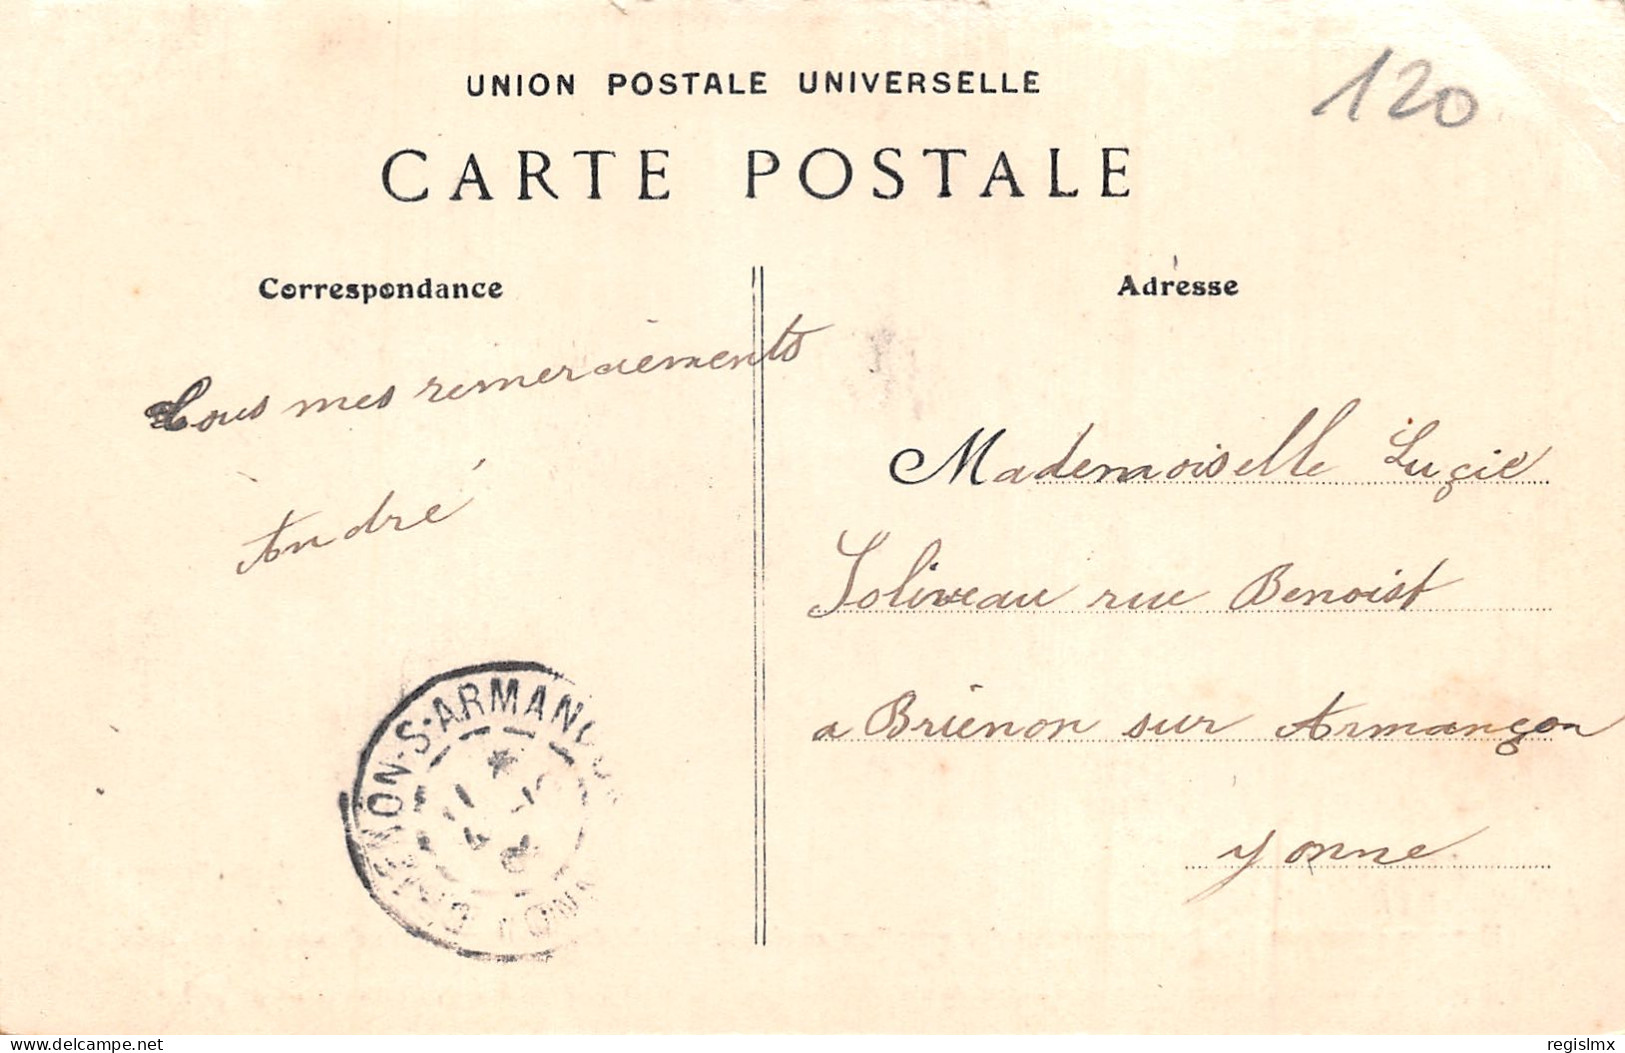 120
UNION POSTALE UNIVERSELLE
CARTE POSTALE
Correspondance
Adresse
Tous mes remerciements
André
Mademoiselle Luçie
Joliveau rue Benoist
a Briénon sur Armançon
Yonne
BRIENON-S-ARMANÇON
www.delcampe.net
regislmx